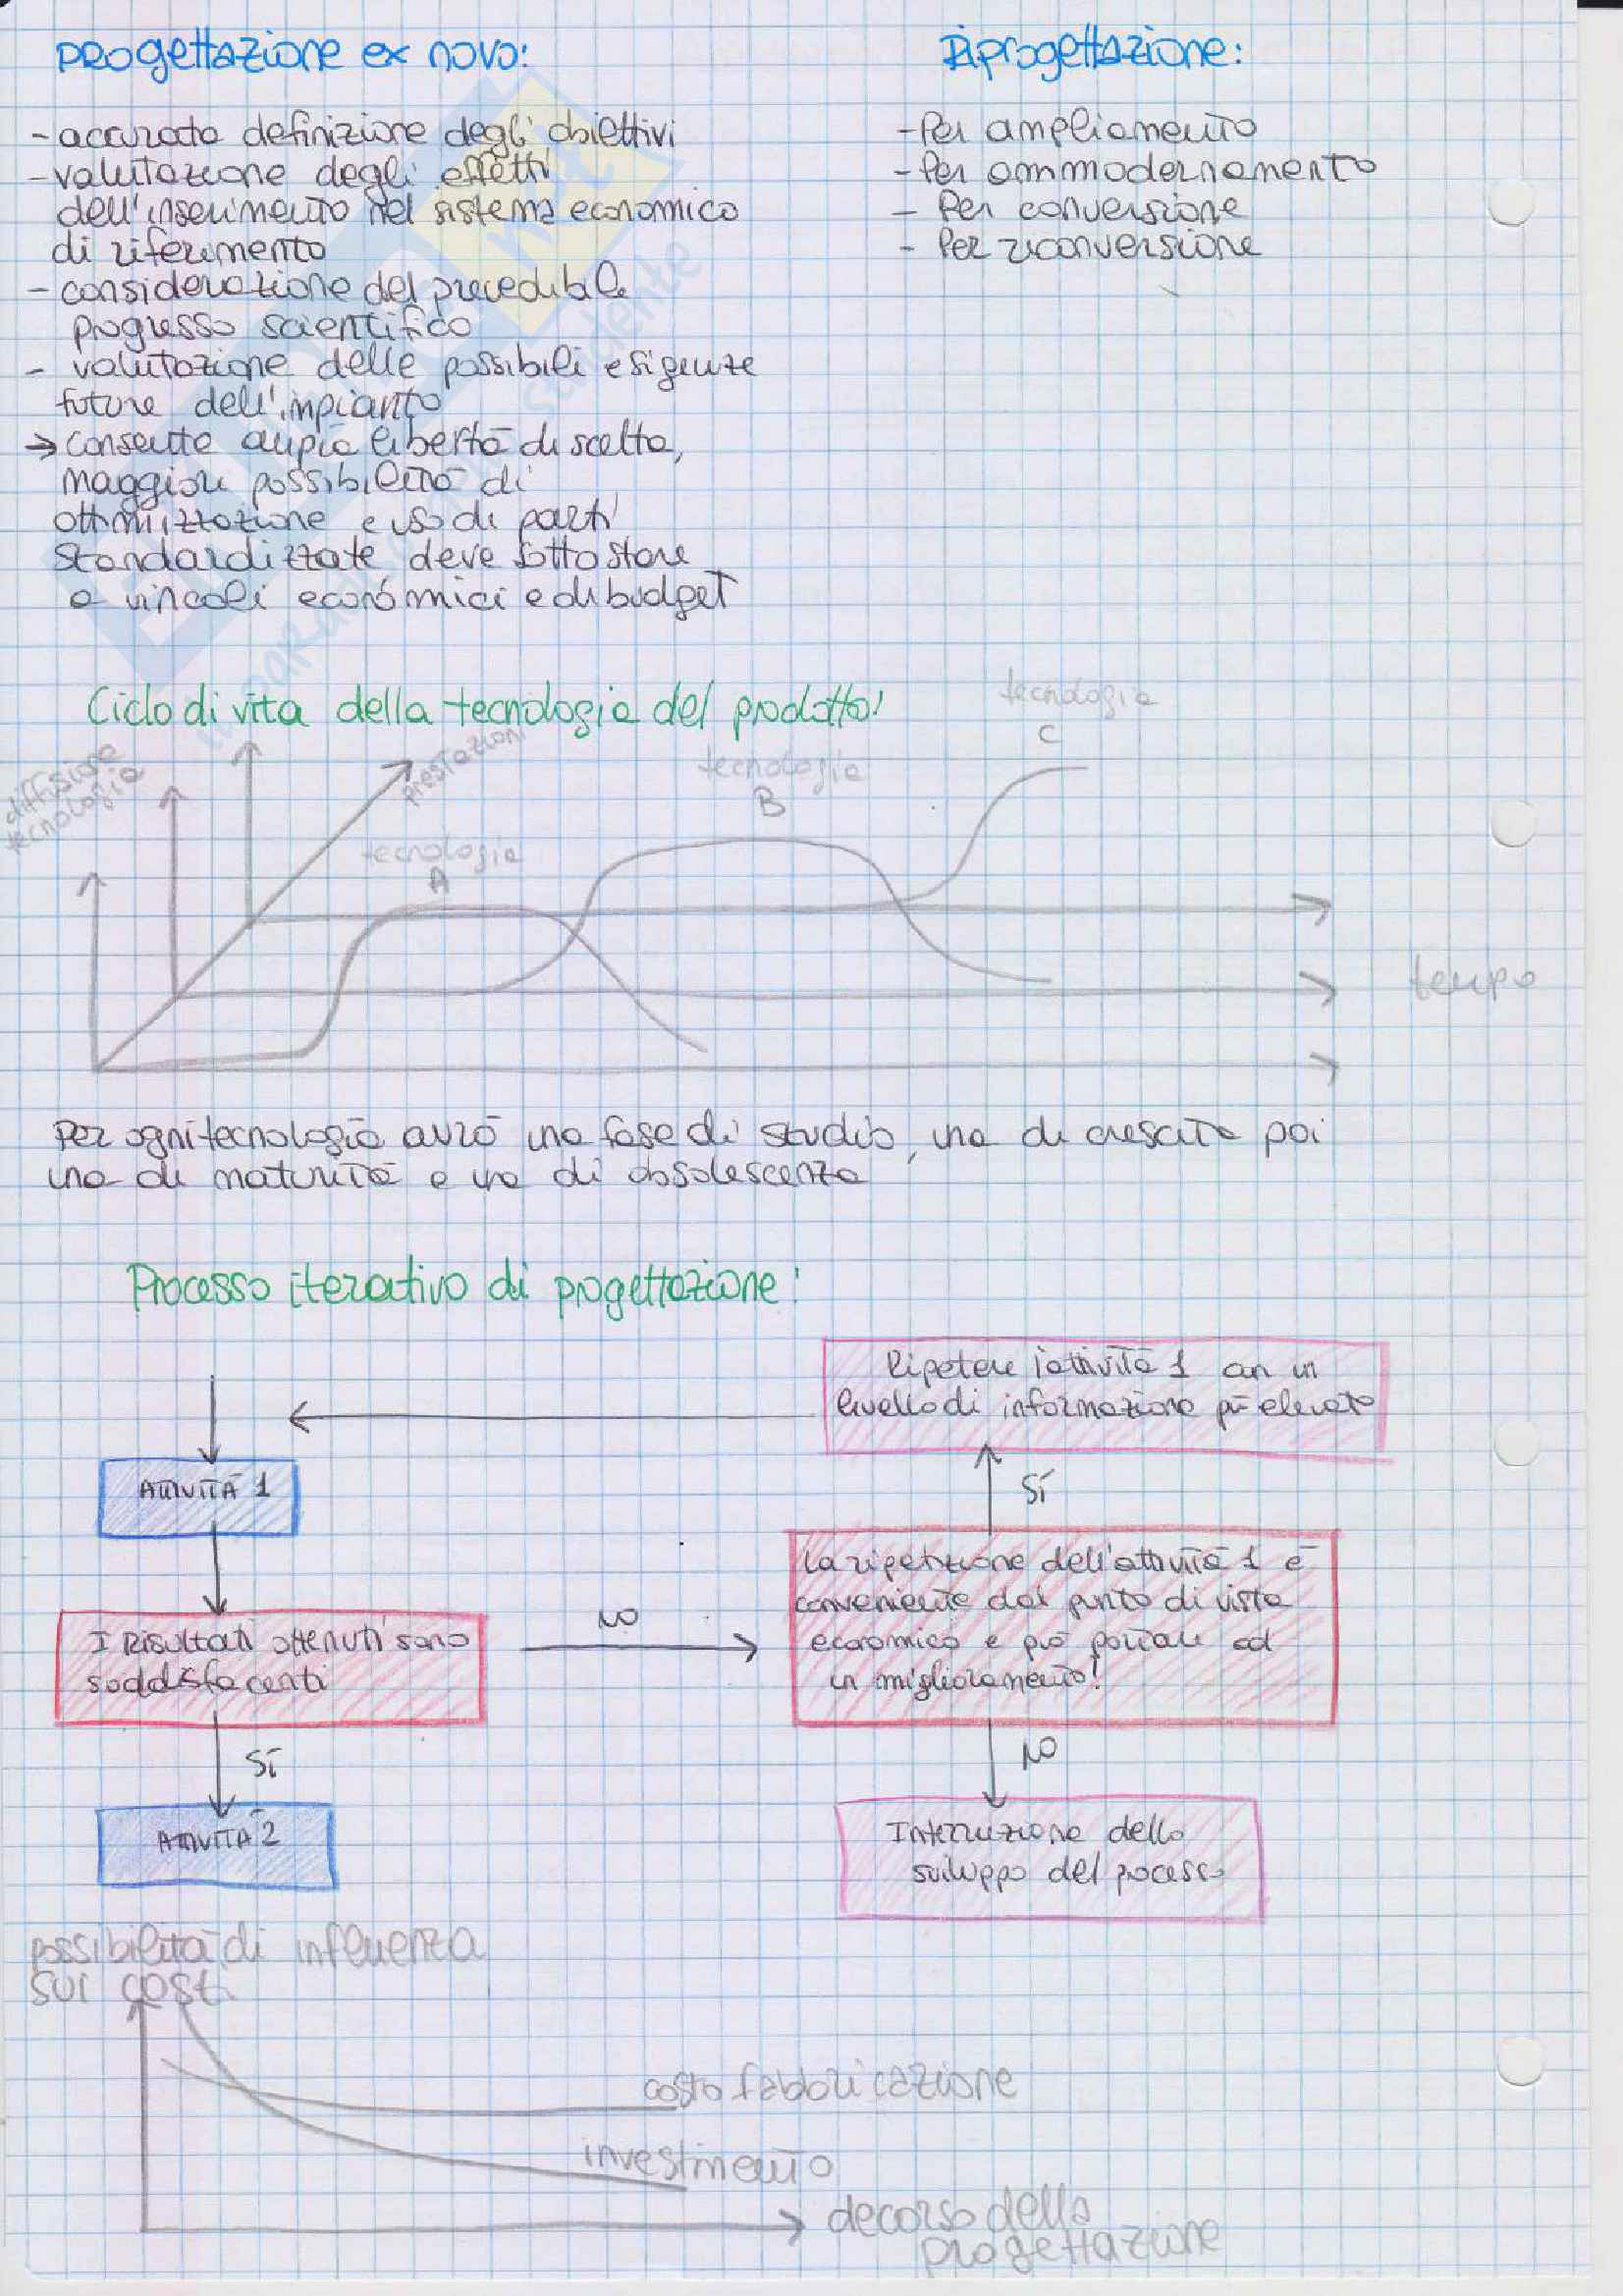 progettazione ex novo:
- accurata definizione degli obiettivi
- valutazione degli effetti
dell'inserimento nel sistema economico
di riferimento
- considerazione del prevedibile
progresso scientifico
- valutazione delle possibili esigenze
future dell'impianto
→ consente ampia libertà di scelta,
maggiori possibilità di
ottimizzazione e uso di parti
standardizzate deve sottostare
a vincoli economici e di budget
Riprogettazione:
- Per ampliamento
- Per ammodernamento
- Per conversione
- Per riconversione
Ciclo di vita della tecnologia del prodotto:
diffusione
tecnologia
prestazioni
tecnologia
A
tecnologia
B
tecnologia
C
tempo
Per ogni tecnologia avrò una fase di studio, una di crescita poi
una di maturità e una di obsolescenza
Processo iterativo di progettazione:
Ripetere l'attività 1 con un
livello di informazione più elevato
ATTIVITÀ 1
SÍ
La ripetizione dell'attività 1 è
conveniente dal punto di vista
economico e può portare ad
un miglioramento!
I Risultati ottenuti sono
soddisfacenti
NO
SÍ
NO
ATTIVITÀ 2
Interruzione dello
sviluppo del processo
possibilità di influenza
sui costi
costo fabbricazione
investimento
decorso della
progettazione